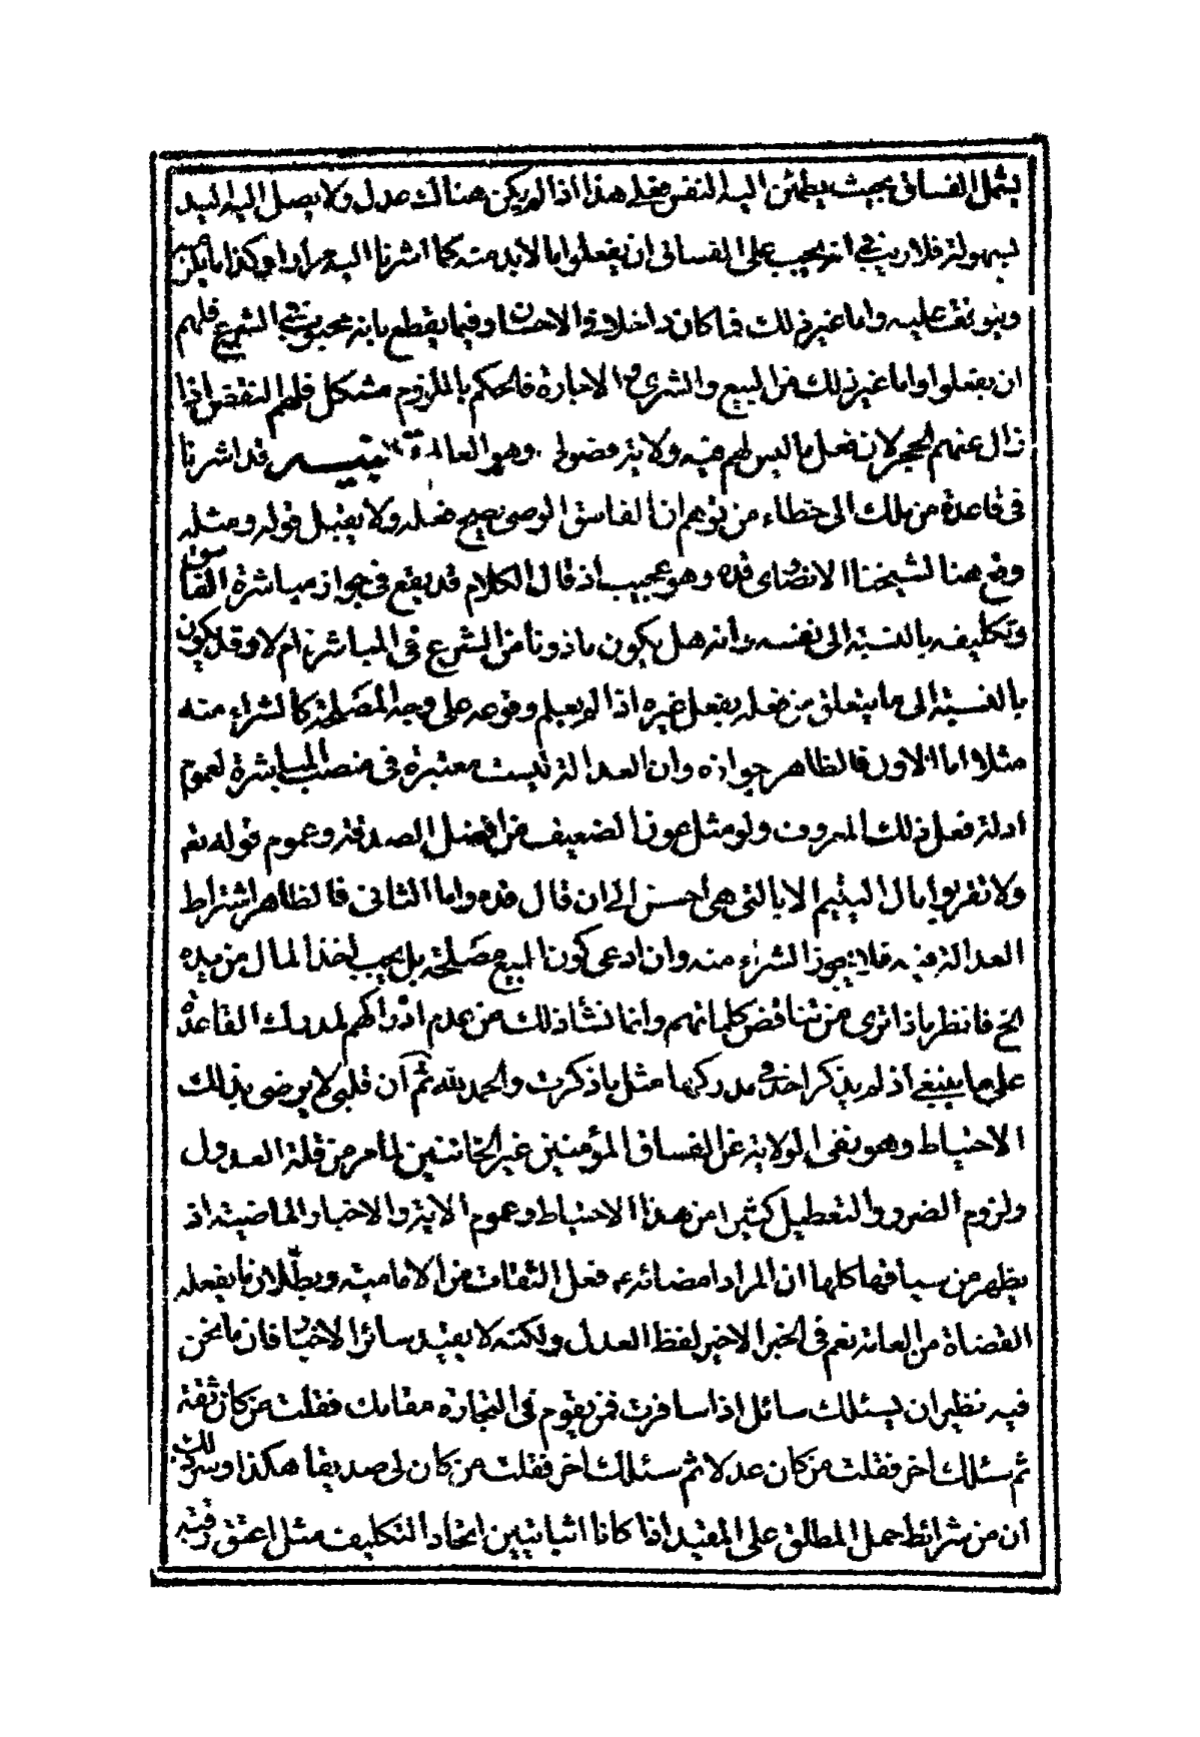 يشمل الفساق بحيث يطمئن اليه النفس فعلى هذا اذا لم يكن هناك عدل ولا يصل اليه اليد
بسهولة فلا ريب في انه يجب على الفساق ان يفعلوا ما لا بد منه كما اشرنا اليه مرارا وكذا ما يمكن
ويتوقف عليه واما غير ذلك فما كان داخلا في الاحسان وفيما يقطع بانه محبوب في الشرع فلهم
ان يفعلوا واما غير ذلك من البيع والشرى و الاجارة فالحكم باللزوم مشكل فلهم النقض اذا
زال عنهم الحجر لانه فعل ما ليس لهم فيه ولاية فضولى وهو العالم تنبيه قد اشرنا
فى قاعدة من ملك الى خطاء من توهم ان الفاسق الوصى يصح فعله ولا يقبل قوله ومثله
وقع هنا لشيخنا الانصارى قده وهو عجيب اذ قال الكلام قد يقع فى جواز مباشرة الفاسق
وتكليفه بالنسبة الى نفسه وانه هل يكون ماذونا من الشرع فى المباشرة ام لا وقد يكون
بالنسبة الى ما يتعلق من فعله بفعل غيره اذا لم يعلم وقوعه على وجه المصلحة كالشراء منه
مثلا اما الاول فالظاهر جوازه وان العدالة ليست معتبرة فى منصب المباشرة لعموم
ادلة فعل ذلك المعروف ولو مثل عون الضعيف من افضل الصدقة وعموم قوله تع
ولا تقربوا مال اليتيم الا بالتى هى احسن الى ان قال قده واما الثانى فالظاهر اشتراط
العدالة فيه فلا يجوز الشراء منه وان ادعى كون البيع مصلحة بل يجب اخذ المال من يده
الخ فانظر ماذا ترى من تناقض كلماتهم وانما نشأ ذلك من عدم ادراكهم لمدرك القاعدة
على ما ينبغى اذ لم يذكر احد فى مدركها مثل ما ذكرت والحمد لله ثم ان قلبى لا يرضى بذلك
الاحتياط وهو نفى الولاية عن الفساق المؤمنين غير الخائنين لما مر من قلة العدول
ولزوم الضرر والتعطيل كثيرا من هذا الاحتياط وعموم الاية والاخبار الماضية اذ
يظهر من سياقها كلها ان المراد امضائه فعل الثقات من الامامية وبطلان ما يفعله
القضاة من العامة نعم فى الخبر الاخير لفظ العدل ولكنه لا يقيد سائر الاخبار فان ما نحن
فيه نظير ان يسئلك سائل اذا سافرت فمن يقوم فى التجارة مقامك فقلت من كان ثقة
ثم سئلك اخر فقلت من كان عدلا ثم سئلك اخر فقلت من كان لى صديقا هكذا وسر ذلك
ان من شرائط حمل المطلق على المقيد اذا كانا اثباتيين اتحاد التكليف مثل اعتق رقبة